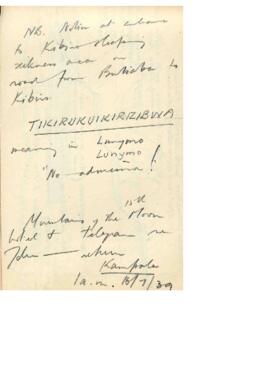 NB. Notice at entrance
to Kibiro sleeping
sickness area on
road from Butiaba to
Kibiro
TIKIRUKUIKIRRIBWA
meaning in Lunyoro
Lunyoro
"No admission!"
Mountains of the Moon
hotel & telegram re
John — return
Kampala
1a.m. 13/7/39